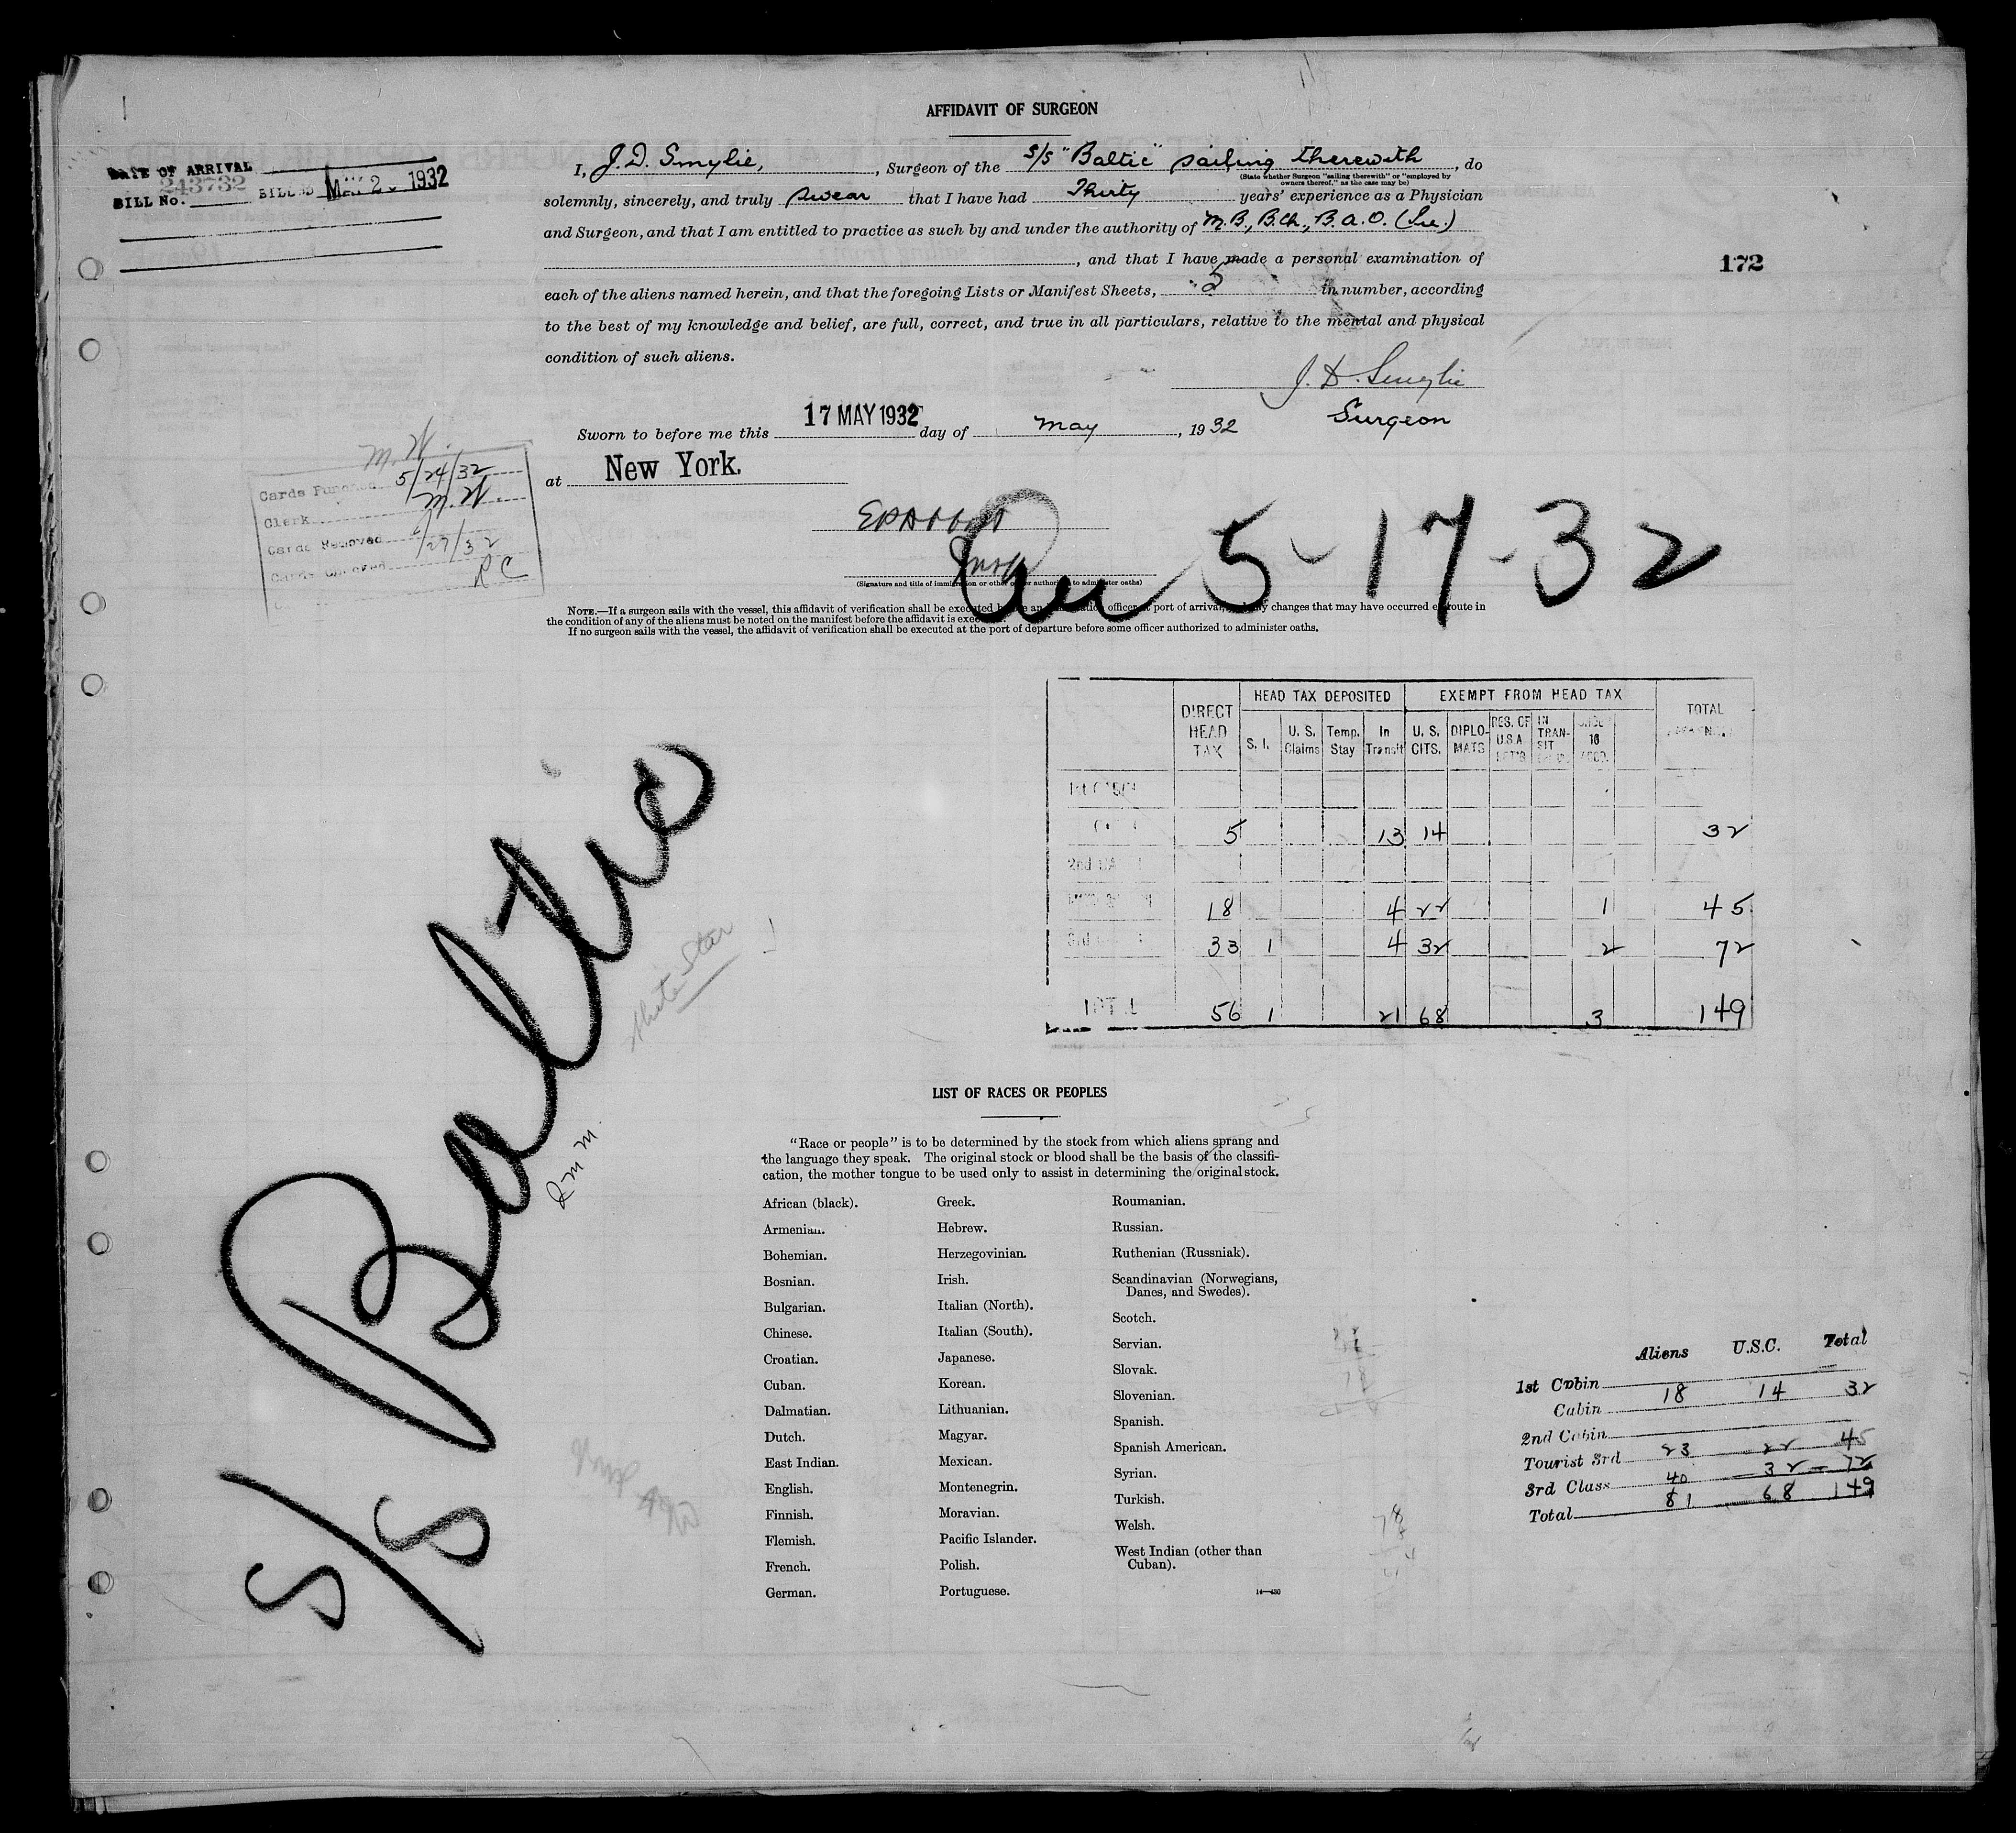 AFFIDAVIT OF SURGEON
DATE OF ARRIVAL
243732
BILL No. BILLED MAY 2 1932
I, J. D. Smylie, , Surgeon of the S/S "Baltic" sailing therewith , do
(State whether Surgeon "sailing therewith" or "employed by
owners thereof," as the case may be)
solemnly, sincerely, and truly swear that I have had Thirty years' experience as a Physician
and Surgeon, and that I am entitled to practice as such by and under the authority of M.B., B.Ch., B.A.O. (Ire.)
, and that I have made a personal examination of
172
each of the aliens named herein, and that the foregoing Lists or Manifest Sheets, 5 in number, according
to the best of my knowledge and belief, are full, correct, and true in all particulars, relative to the mental and physical
condition of such aliens.
J. D. Smylie
Surgeon
Sworn to before me this 17 MAY 1932 day of May , 1932
at New York.
M. W.
Cards Punched 5/24/32
Clerk M. W.
Cards Removed 6/27/32
Cards Checked RC
Insp
(Signature and title of immigration or other officer authorized to administer oaths)
Arr 5-17-32
NOTE.—If a surgeon sails with the vessel, this affidavit of verification shall be executed before an immigration officer at port of arrival, and any changes that may have occurred en route in
the condition of any of the aliens must be noted on the manifest before the affidavit is executed.
If no surgeon sails with the vessel, the affidavit of verification shall be executed at the port of departure before some officer authorized to administer oaths.
DIRECT HEAD TAX HEAD TAX DEPOSITED EXEMPT FROM HEAD TAX TOTAL
S. I. U. S. Claims Temp. Stay In Transit U. S. CITS. DIPLOMATS RES. OF U.S.A. IN TRANSIT UNDER 16
1st CABIN
5 13 14 32
2nd CA
18 4 22 1 45
3rd 33 1 4 32 2 72
TOTAL 56 1 21 68 3 149
S/S Baltic
White Star
RMM.
LIST OF RACES OR PEOPLES
"Race or people" is to be determined by the stock from which aliens sprang and
the language they speak. The original stock or blood shall be the basis of the classifi-
cation, the mother tongue to be used only to assist in determining the original stock.
African (black).
Armenian.
Bohemian.
Bosnian.
Bulgarian.
Chinese.
Croatian.
Cuban.
Dalmatian.
Dutch.
East Indian.
English.
Finnish.
Flemish.
French.
German.
Greek.
Hebrew.
Herzegovinian.
Irish.
Italian (North).
Italian (South).
Japanese.
Korean.
Lithuanian.
Magyar.
Mexican.
Montenegrin.
Moravian.
Pacific Islander.
Polish.
Portuguese.
Roumanian.
Russian.
Ruthenian (Russniak).
Scandinavian (Norwegians,
Danes, and Swedes).
Scotch.
Servian.
Slovak.
Slovenian.
Spanish.
Spanish American.
Syrian.
Turkish.
Welsh.
West Indian (other than
Cuban).
14—430
Aliens U.S.C. Total
1st Cabin
Cabin 18 14 32
2nd Cabin
Tourist 3rd 23 22 45
3rd Class 40 32 72
Total 81 68 149